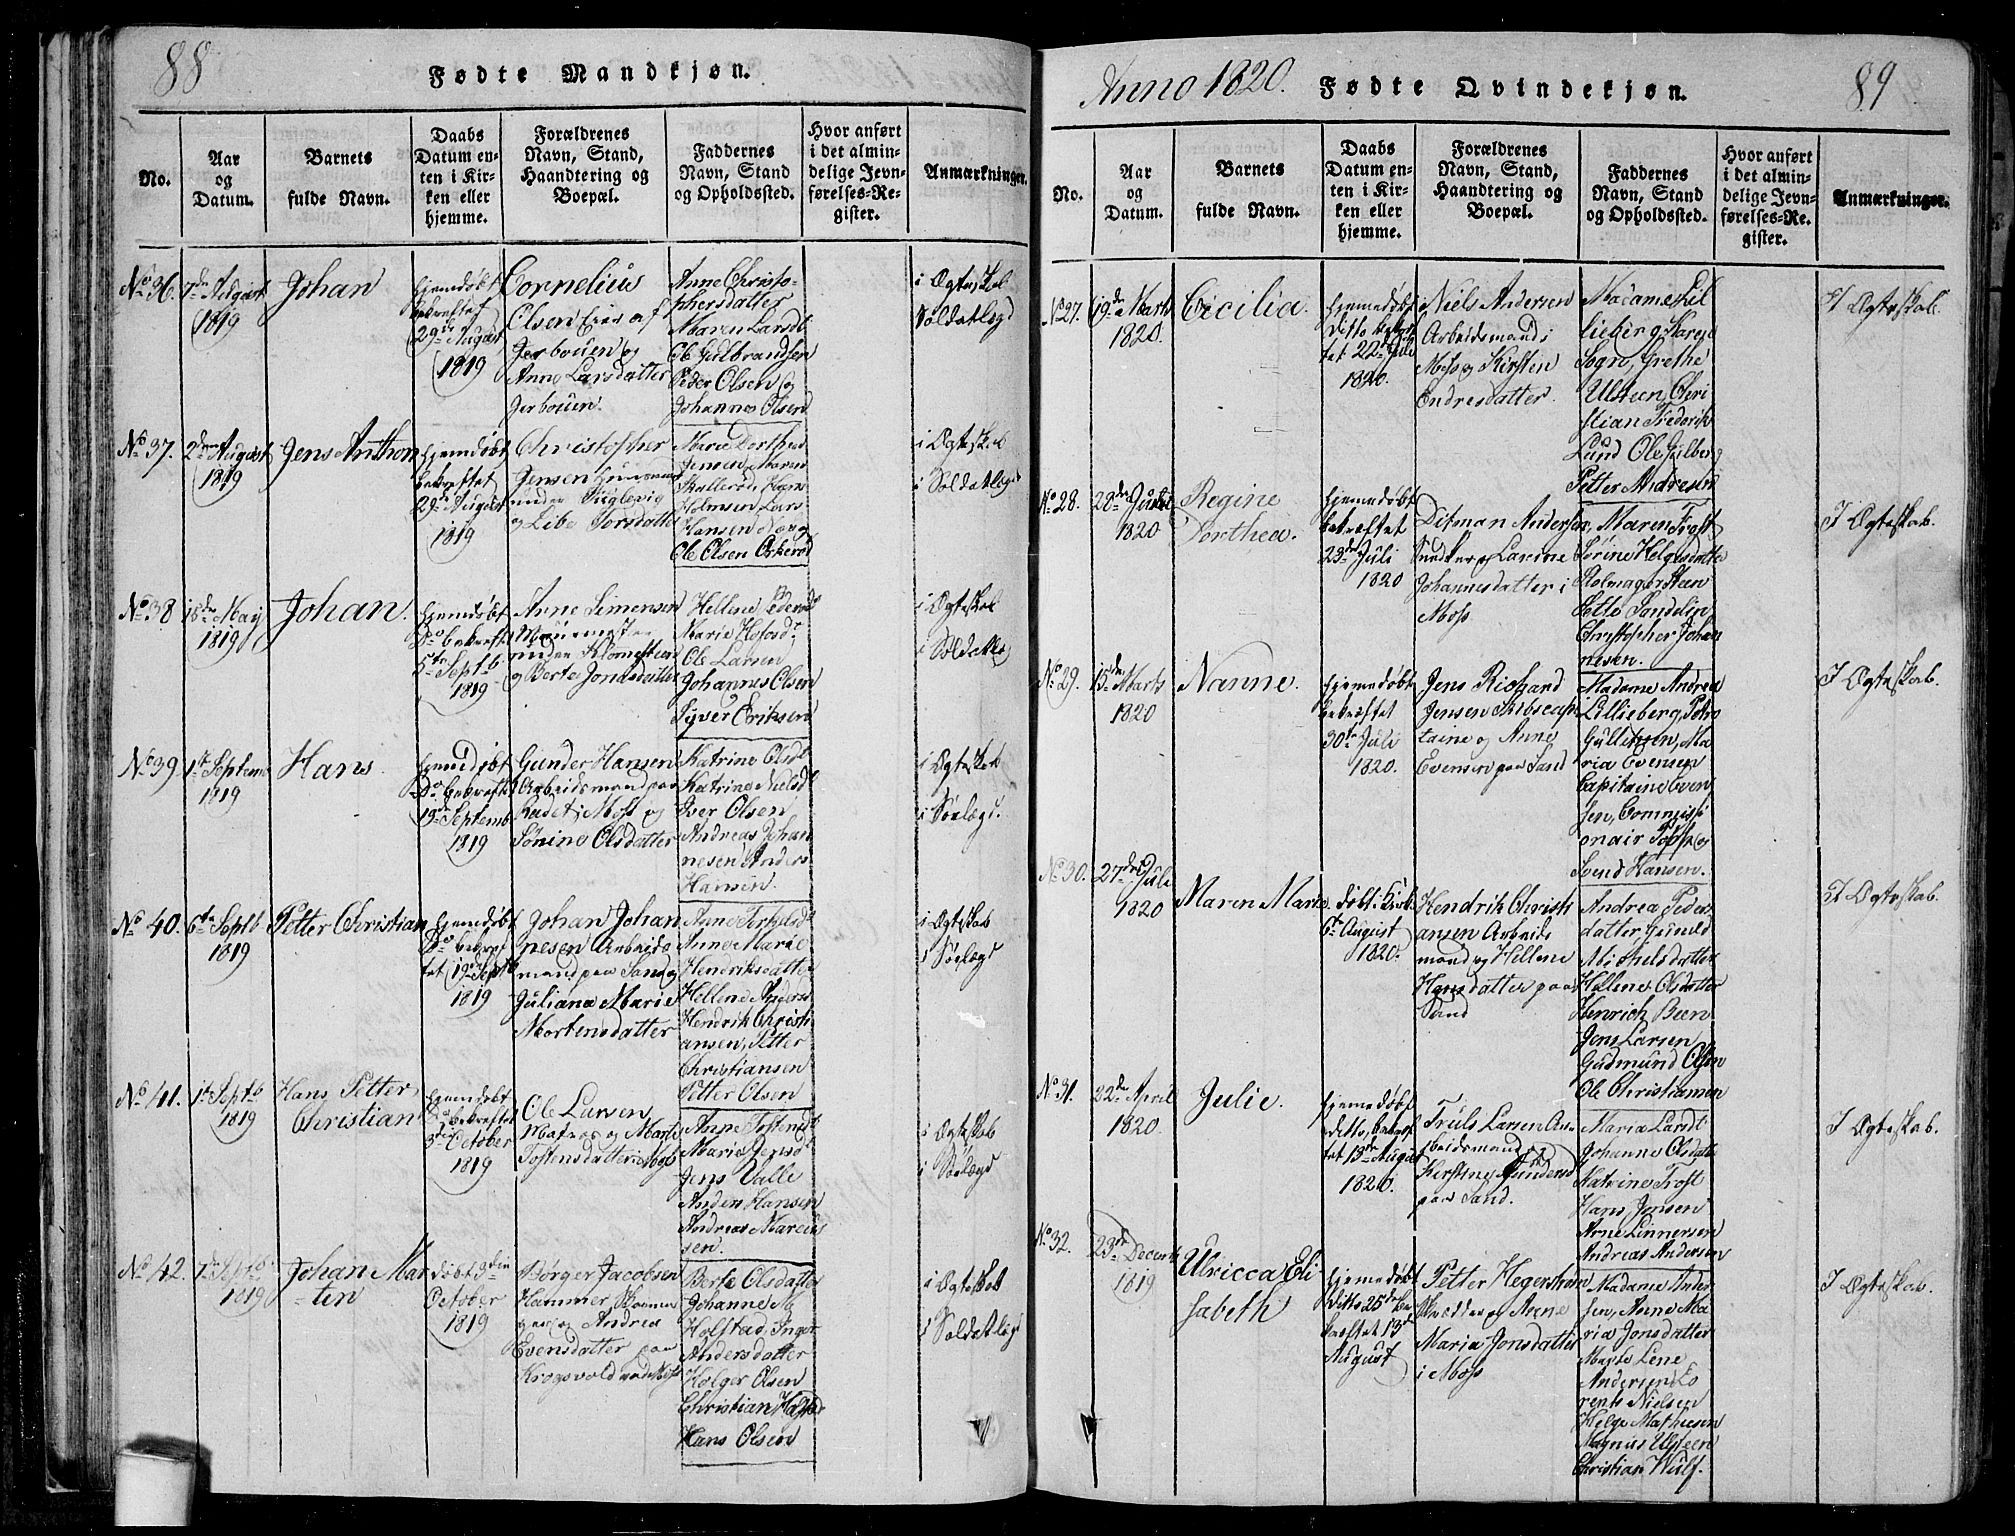 88
Fødte Mandkjøn.
No.
Aar
og
Datum.
Barnets
fulde Navn.
Daabs
Datum en-
ten i Kir-
ken eller
hjemme.
Forældrenes
Navn, Stand,
Haandtering og
Boepæl.
Faddernes
Navn, Stand
og Opholdssted.
Hvor anført
i det almin-
delige Jevn-
førelses-Re-
gister.
Anmærkninger.
No 36.
7de August
1819
Johan
hjemedøbt
bekræftet
29de August
1819
Cornelius
Olsen Eier af
Jerbouen og
Anne Larsdatter
Jerbouen.
Anne Christo-
phersdatter
Maren Larsdt
Ole Gulbrandsen
Peder Olsen og
Johannes Olsen
i Ægteskab
Soldatlegd
No 37.
2den August
1819
Jens Anthon
hjemdøbt
bekræftet
29de August
1819
Christopher
Jensen Huusmand
under
og Libe Torsdatter
Marie Dorthea
Jensen Maren
Skallerød Hans
Holmsen Lars
Hansen
Ole Olsen
i Ægteskab
i Soldatlegd
No 38
18de May
1819
Johan.
hjemdøbt
Do bekræftet
5te Septb
1819
Arne Simensen
under
og Berte Jonasdatter
Hellene Pedersdt
Marie
Ole Larsen
Johannes Olsen
Syver Eriksen
i Ægteskab
i Soldatleg
No 39.
1te Septemb
1819
Hans
hjemdøbt
Do bekræftet
19de Septemb
1819
Gunder Hansen
Arbeidsmand paa
i Moss og
Sørine Olsdatter
Katrine Olsdt
Katrine Nielsdt
Iver Olsen
Andreas Johan
nesen Anders
Hansen.
i Ægteskab
i Søelegd.
No 40.
6te Septb
1819
Petter Christian
hjemdøbt
Do bekræf
tet 19de Septb
1819
Johan Johan
nesen Arbeids
mand paa Sand og
Juliana Marie
Mortensdatter
Anne Torkelsdt
Anne Marie
Hendriksdatter
Hellene Andersd
Hendrik Christi
ansen, Petter
Christiansen
Petter Olsen
i Ægteskab
i Søelegd
No 41.
1te Septb
1819
Hans Petter
Christian
hjemdøbt
Do bekræftet
3die October
1819
Ole Larsen
Matros og Marte
Tostensdatter i Moss
Anne Tostensdt
Maria Jensdt
Jens Valle
Anders Hansen
Andreas Marcus
sen.
i Ægteskab
i Søelegd
No 42.
7de Septb
1819
Johan Mar
ten
døbt 3die
October
1819
Børger Jacobsen
Hammer
og Andrea
Evensdatter paa
Krogsvold ved Moss
Berte Olsdatter
Johanne M
Holstad, Inger
Andersdatter
Holger Olsen
Christian Holstad
Hans Olsen
i Ægteskab
i Soldatlegd
Anno 1820. Fødte Qvindekjøn.
89
No.
Aar
og
Datum.
Barnets
fulde Navn.
Daabs
Datum en-
ten i Kir-
ken eller
hjemme.
Forældrenes
Navn, Stand,
Haandtering og
Boepæl.
Faddernes
Navn, Stand
og Opholdssted.
Hvor anført
i det almin-
delige Jevn-
førelses-Re-
gister.
Anmærkninger.
No 27.
19de Marts
1820.
Cicilia.
hjemedøbt
ditto bekræf
tet 22de Juli
1820.
Niels Andersen
Arbeidsmand i
Moss og Kirsten
Endresdatter.
Madame Lil
lieberg, Karen
Sogn, Grethe
Ulsteen, Chri
stian Frederik
Lund Ole Gulberg
Petter Andresen
I Ægteskab.
No 28.
1820
Regine
Dorthea.
hjemedøbt
bekræftet
23de Juli
1820
Ditman Andersen,
Snedker og Lavine
Johannesdatter i
Moss.
Maren Trost
Sørine Helgesdatter
Stolmager Steen
Jette Sandelin
Christopher Johan
nesen.
I Ægteskab.
No 29.
15de Marts
1820
Nanne.
hjemedøbt
bekræftet
30te Juli
1820.
Jens Richard
Jensen Skibscap
taine og Anne
Evensen paa Sand
Madame Andrea
Lillieberg, Petro
Gullichsen, Ma
ria Evensen
Capitaine Even
sen, Commissi
onair og
Svend Hansen.
I Ægteskab.
No 30.
27de Juli
1820
Maren Marie.
døbt i Kirk
6te August
1820.
Hendrik Christi
ansen Arbeids
mand og Hellene
Hansdatter paa
Sand
Andrea Peders
datter, Gunild
Michelsdatter
Hellene Olsdatter
Henrich Been
Jens Larsen
Gudmund Olsen
Ole Christiansen
I Ægteskab.
No 31.
22de April
1820.
Julie.
hjemedøbt
ditto, bekræf
tet 13de August
1820.
Truls Larsen Ar
beidsmand og
Kirstine Gundersd
paa Sand.
Maria Larsdt
Johanne Olsdatter
Katrine Trost
Hans Jensen
Arne Linnersen
Andreas Andersen
I Ægteskab.
No 32.
23de Decemb
1819
Ulricca Eli
sabeth
hjemedøbt
ditto 25de be
kræftet 13de
August
Petter Hegerstram
Skrædder og Anne
Maria Jonsdatter
i Moss
Madame Ander
sen, Anne Ma
ria Jonsdatter
Marte Lene
Andersen, Lo
rents Nielsen
Helge Mathiesen
Magnus Ulsteen
Christian Wulf.
I Ægteskab.